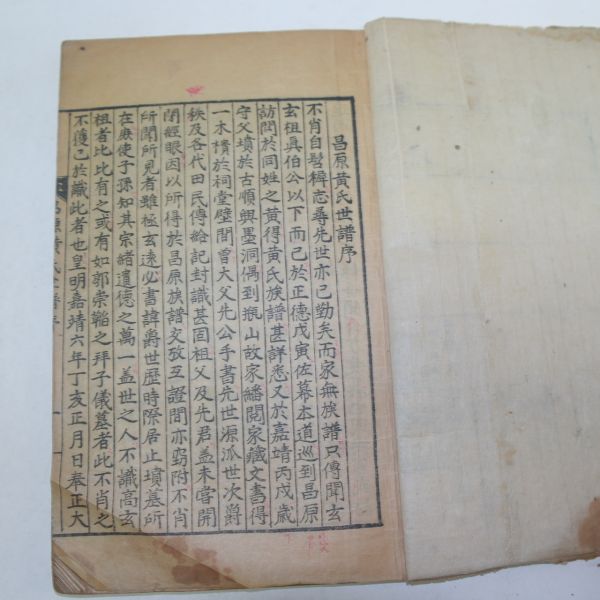 昌原黃氏世譜序
不肖自髫稺志尋先世亦已勤矣而家無族譜只傳聞玄
玄祖眞伯公以下而已於正德戊寅佐幕本道巡到昌原
訪問於同姓之黃得黃氏族譜甚詳悉又於嘉靖丙戌歲
守父墳於古順興墨洞偶到甁山故家繙閱家藏文書得
一木樻於祠堂壁間曾大父先公手書先世源泒世次爵
秩及各代田民傳給記封識甚固祖父及先君盖未嘗開
閉經眼因以所得於昌原族譜交攷互證間亦竊附不肖
所聞所見者雖極玄遠必書諱爵世歷時際居止墳墓所
在庶使子孫知其宗緖遺德之萬一盖世之人不識高玄
祖者比比有之或有如郭崇韜之拜子儀墓者此不肖之
不獲已於識此者也皇明嘉靖六年丁亥正月日奉正大
昌原黃氏世譜序